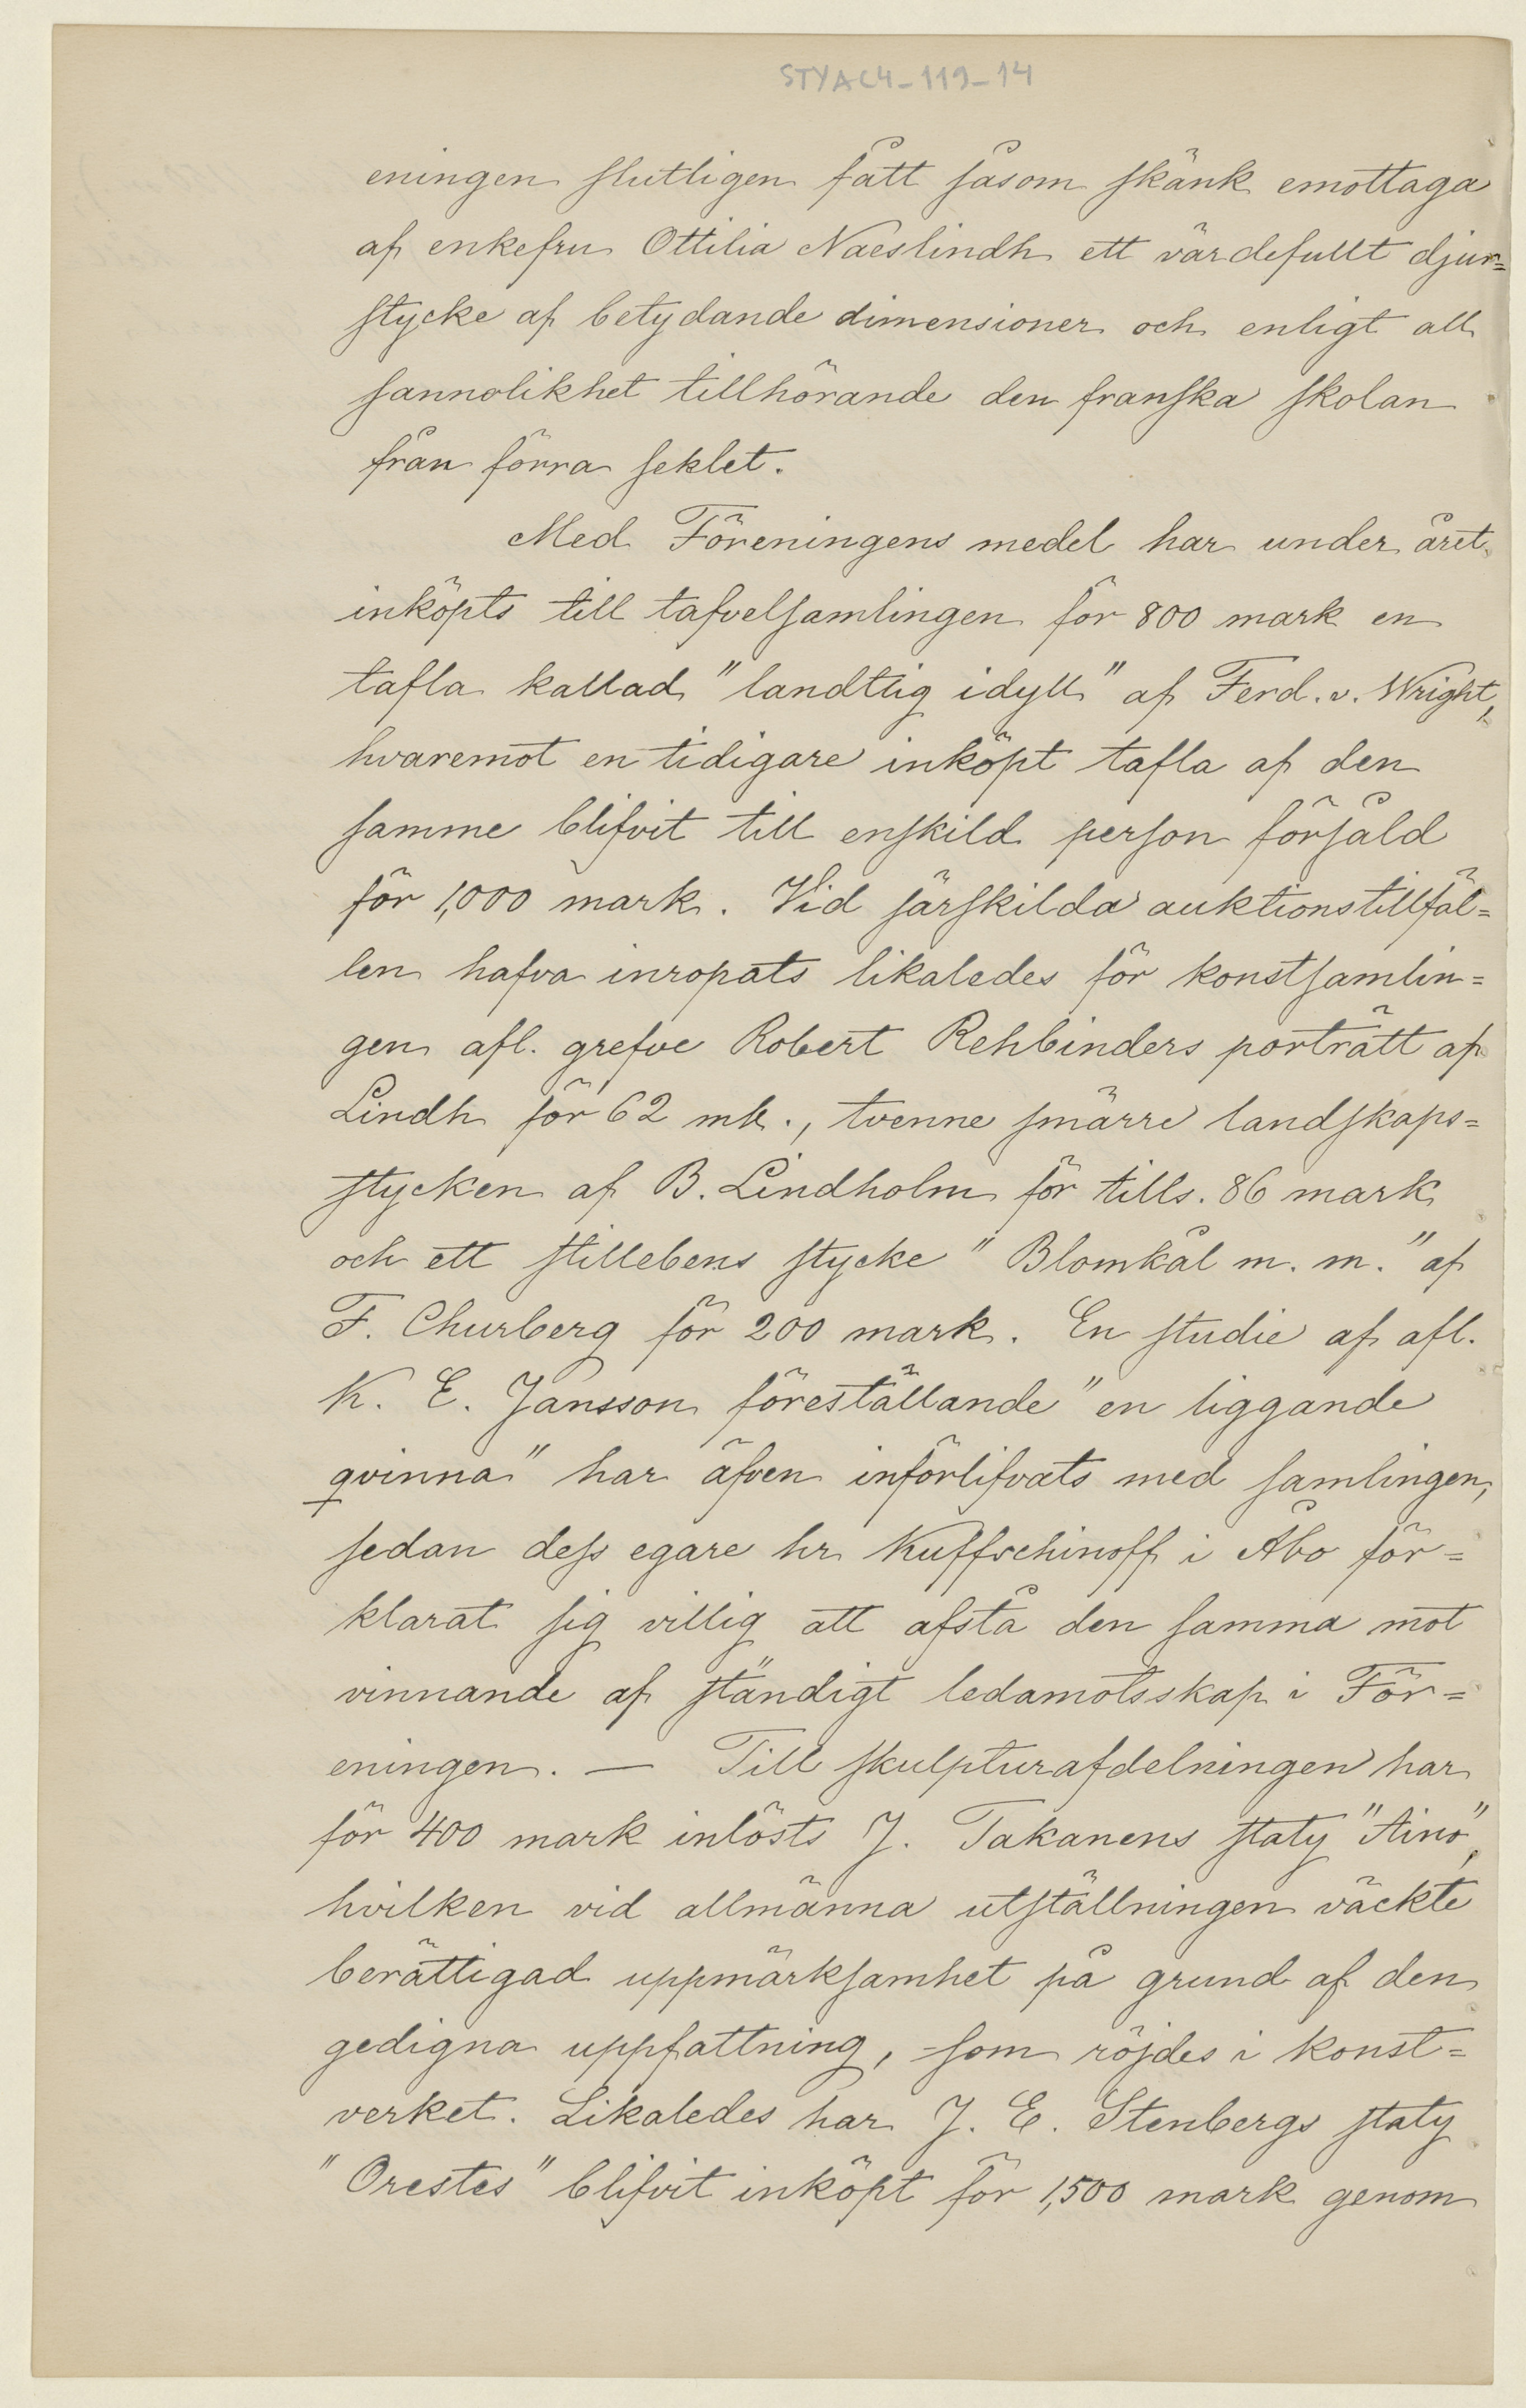 STYAC4-119-14
eningen slutligen fått såsom skänk emottaga
af enkefru Ottilia Naeslindh ett värdefullt djur=
stycke af betydande dimensioner och enligt all
sannolikhet tillhörande den franska skolan
från förra seklet.
Med Föreningens medel har under året
inköpts till tafvelsamlingen för 800 mark en
tafla kallad "landtlig idyll" af Ferd. v. Wright,
hvaremot en tidigare inköpt tafla af den
samme blifvit till enskild person försåld
för 1,000 mark. Vid särskilda auktionstillfäl=
len hafva inropats likaledes för konstsamlin=
gen afl. grefve Robert Rehbinders porträtt af
Lindh för 62 mk., tvenne smärre landskaps=
stycken af B. Lindholm för tills. 86 mark
och ett stillebens stycke "Blomkål m. m." af
F. Churberg för 200 mark. En studie af afl.
K. E. Jansson föreställande "en liggande
qvinna" har äfven införlifvats med samlingen,
sedan dess egare hr Kuffschinoff i Åbo för=
klarat sig villig att afstå den samma mot
vinnande af ständigt ledamotsskap i För=
eningen. — Till skulpturafdelningen har
för 400 mark inlösts J. Takanens staty "Aino",
hvilken vid allmänna utställningen väckte
berättigad uppmärksamhet på grund af den
gedigna uppfattning, som röjdes i konst=
verket. Likaledes har J. E. Stenbergs staty
"Orestes" blifvit inköpt för 1,500 mark genom